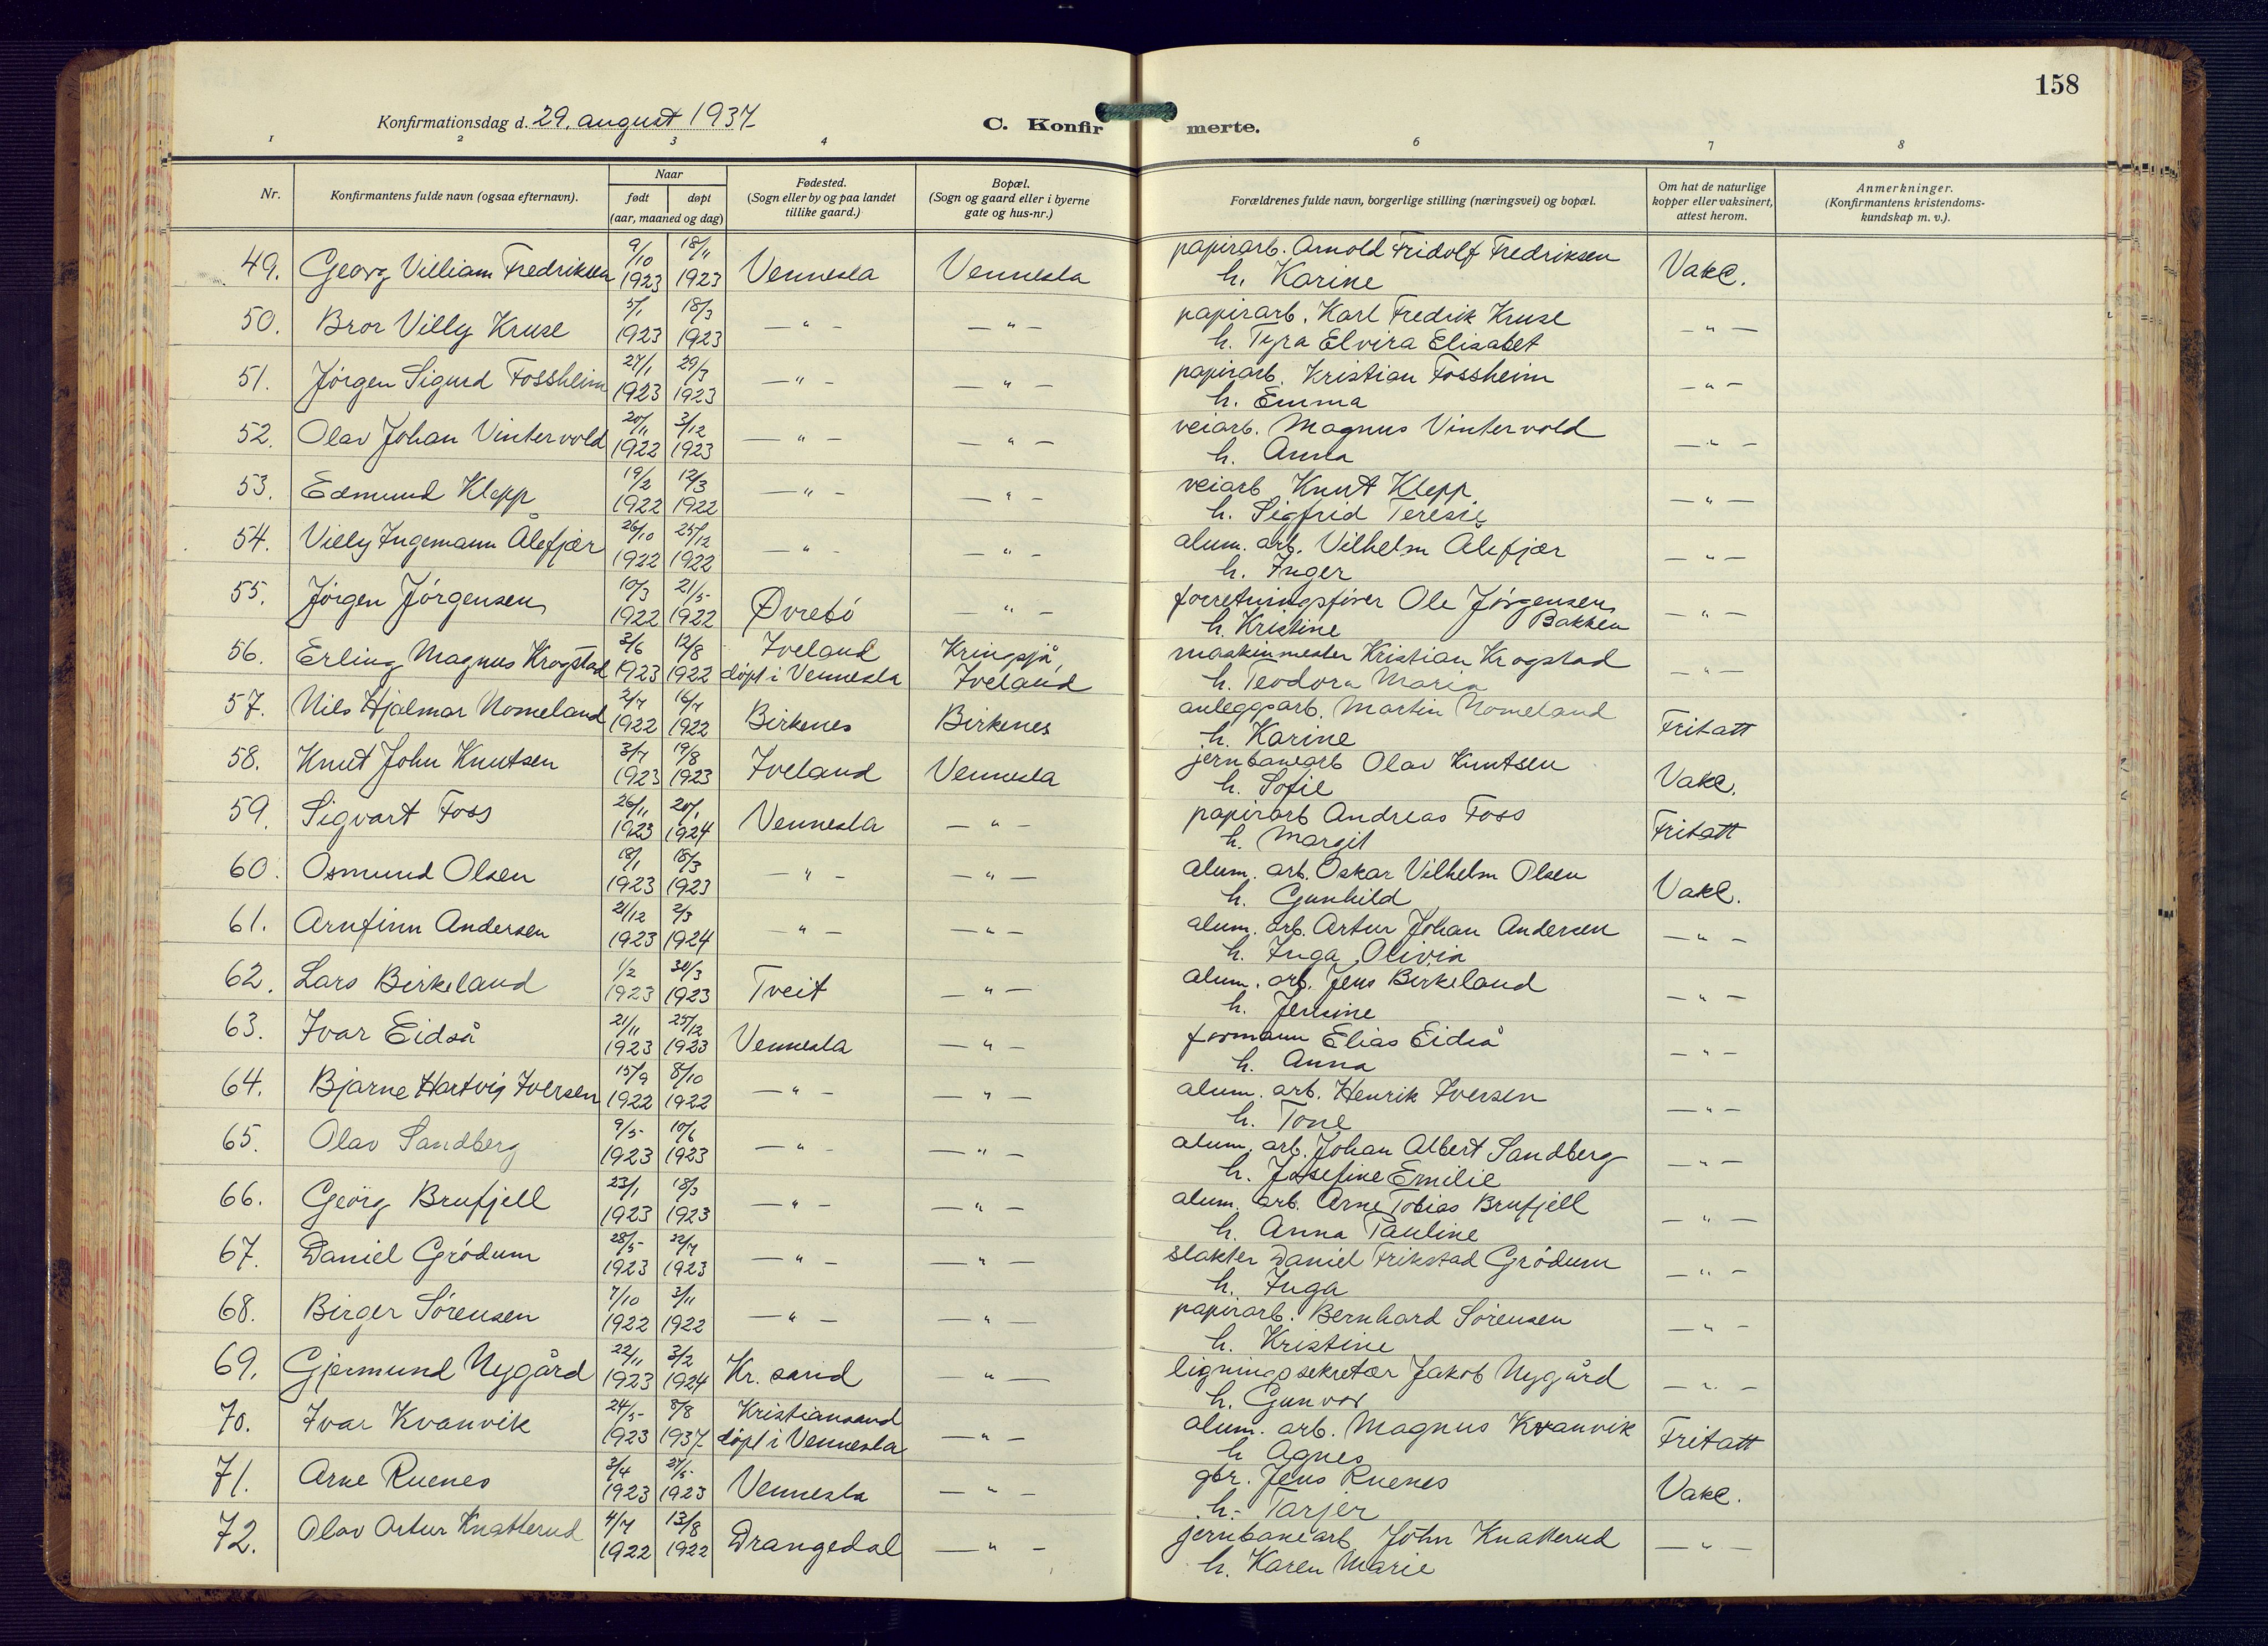 158
Konfirmationsdag d. 29. august 1937
C. Konfirmerte.
1 2 3 4 6 7 8
Nr.
Konfirmantens fulde navn (ogsaa efternavn).
Naar
født døpt
(aar, maaned og dag)
Fødested.
(Sogn eller by og paa landet
tillike gaard.)
Bopæl.
(Sogn og gaard eller i byerne
gate og hus-nr.)
Forældrenes fulde navn, borgerlige stilling (næringsvei) og bopæl.
Om hat de naturlige
kopper eller vaksinert,
attest herom.
Anmerkninger.
(Konfirmantens kristendoms-
kundskap m. v.).
49. Georg Villiam Fredriksen 9/10 1923 18/11 1923 Vennesla Vennesla papirarb. Arnold Fridolf Fredriksen Vakc.
h. Karine
50. Bror Villy Kruse 5/1 1923 18/3 1923 — " — — " — papirarb. Karl Fredrik Kruse — " —
h. Tyra Elvira Elisabet
51. Jörgen Sigurd Fossheim 27/1 1923 29/3 1923 — " — — " — papirarb. Kristian Fossheim — " —
h. Emma
52. Olav Johan Vintervold 20/11 1922 3/12 1923 — " — — " — veiarb. Magnus Vintervold — " —
h. Anna
53. Edmund Klepp 19/2 1922 12/3 1922 — " — — " — veiarb Knut Klepp — " —
h. Sigfrid Teresie
54. Villy Ingemann Ålefjær 26/10 1922 25/12 1922 — " — — " — alum. arb. Vilhelm Alefjær — " —
h. Inger
55. Jörgen Jörgensen 10/3 1922 21/5 1922 Øvrebö — " — forretningsförer Ole Jörgensen — " —
h. Kristine Bakken
56. Erling Magnus Krogstad 3/6 1923 12/8 1922 Iveland Kringsjå, maskinmester Kristian Krogstad — " —
döpt i Vennesla Iveland h. Teodora Maria
57. Nils Hjalmar Nomeland 2/7 1922 16/7 1922 Birkenes Birkenes anleggsarb. Martin Nomeland Fritatt
h. Karine
58. Knut John Knutsen 3/7 1923 19/8 1923 Iveland Vennesla jernbanearb Olav Knutsen Vakc.
h. Sofie
59. Sigvart Foss 26/11 1923 20/1 1924 Vennesla — " — papirarb Andreas Foss Fritatt
h. Margit
60. Osmund Olsen 18/1 1923 18/3 1923 — " — — " — alum. arb. Oskar Vilhelm Olsen Vakc.
h. Gunhild
61. Arnfinn Andersen 21/12 1923 2/3 1924 — " — — " — alum. arb. Artur Johan Andersen — " —
h. Inga Olivia
62. Lars Birkeland 1/2 1923 30/3 1923 Tveit — " — alum. arb. Jens Birkeland — " —
h. Jensine
63. Ivar Eidså 21/11 1923 25/12 1923 Vennesla — " — formann Elias Eidså — " —
h. Anna
64. Bjarne Hartvig Iversen 15/9 1922 8/10 1922 — " — — " — alum. arb. Henrik Iversen — " —
h. Tone
65. Olav Sandberg 9/5 1923 10/6 1923 — " — — " — alum. arb. Johan Albert Sandberg — " —
h. Josefine Emilie
66. Georg Brufjell 23/1 1923 18/3 1923 — " — — " — alum. arb. Arne Tobias Brufjell — " —
h. Anna Pauline
67. Daniel Grödum 28/5 1923 22/7 1923 — " — — " — slakter Daniel Frikstad Grödum — " —
h. Inga
68. Birger Sörensen 7/10 1922 3/11 1922 — " — — " — papirarb. Bernhard Sörensen — " —
h. Kristine
69. Gjermund Nygård 22/11 1923 3/2 1924 Kr. sand — " — ligningssekretær Jakob Nygård — " —
h. Gunvor
70. Ivar Kvanvik 24/5 1923 8/8 1937 Kristiansand — " — alum. arb. Magnus Kvanvik Fritatt
döpt i Vennesla h Agnes
71. Arne Ruenes 3/4 1923 27/5 1923 Vennesla — " — gbr. Jens Ruenes Vakc.
h. Tarjer
72. Olav Artur Knatterud 4/7 1922 13/8 1922 Drangedal — " — jernbanearb John Knatterud — " —
h. Karen Marie